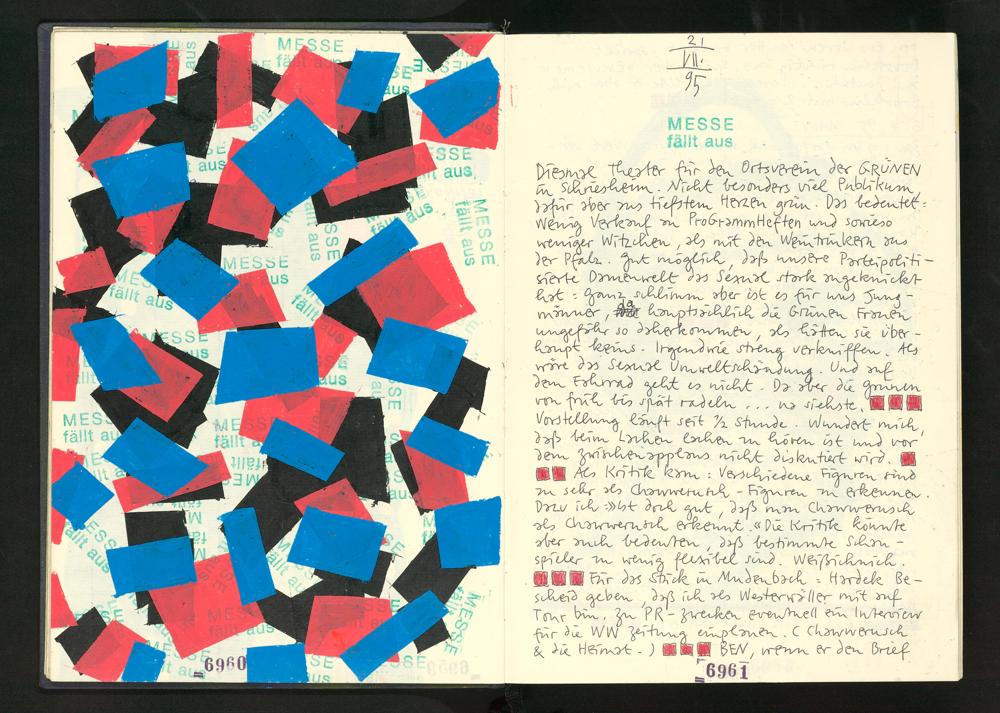 MESSE
fällt aus
MESSE
fällt aus
MESSE
fällt aus
MESSE
fällt aus
MESSE
fällt aus
MESSE
fällt aus
6960
21
VII.
95
MESSE
fällt aus
Diesmal Theater für den Ortsverein der GRÜNEN
in Schriesheim. Nicht besonders viel Publikum,
dafür aber aus tiefstem Herzen grün. Das bedeutet:
wenig Verkauf an ProGrammHeften und sowieso
weniger Witzchen, als mit den Weintrinkern aus
der Pfalz. Gut möglich, daß unsere Parteipoliti-
sierte Damenwelt das Sexual stark angeknickst
hat: ganz schlimm aber ist es für uns Jung-
männer, da hauptsächlich die Grünen Frauen
ungefähr so daherkommen, als hätten sie über-
haupt keins. Irgendwie streng verkniffen. Als
wäre das Sexual Umweltschändung. Und auf
dem Fahrrad geht es nicht. Da aber die grünen
von früh bis spät radeln ... na siehste.
Vorstellung läuft seit 1/2 Stunde. Wundert mich,
daß beim Lachen lachen zu hören ist und vor
dem Zwischenapplaus nicht diskutiert wird.
Als Kritik kam: Verschiedene Figuren sind
zu sehr als Chawwerusch-Figuren zu erkennen.
Dazu ich: »Ist doch gut, daß man Chawwerusch
als Chawwerusch erkennt.« Die Kritik könnte
aber auch bedeuten, daß bestimmte Schau-
spieler zu wenig flexibel sind. Weißichnich.
Für das Stück in Mudenbach: Hardeck Be-
scheid geben, daß ich als Westerwäller mit auf
Tour bin. Zu PR-zwecken eventuell ein Interview
für die WW Zeitung einplanen. (Chawwerusch
& die Heimat.) BEN, wenn er den Brief
6961